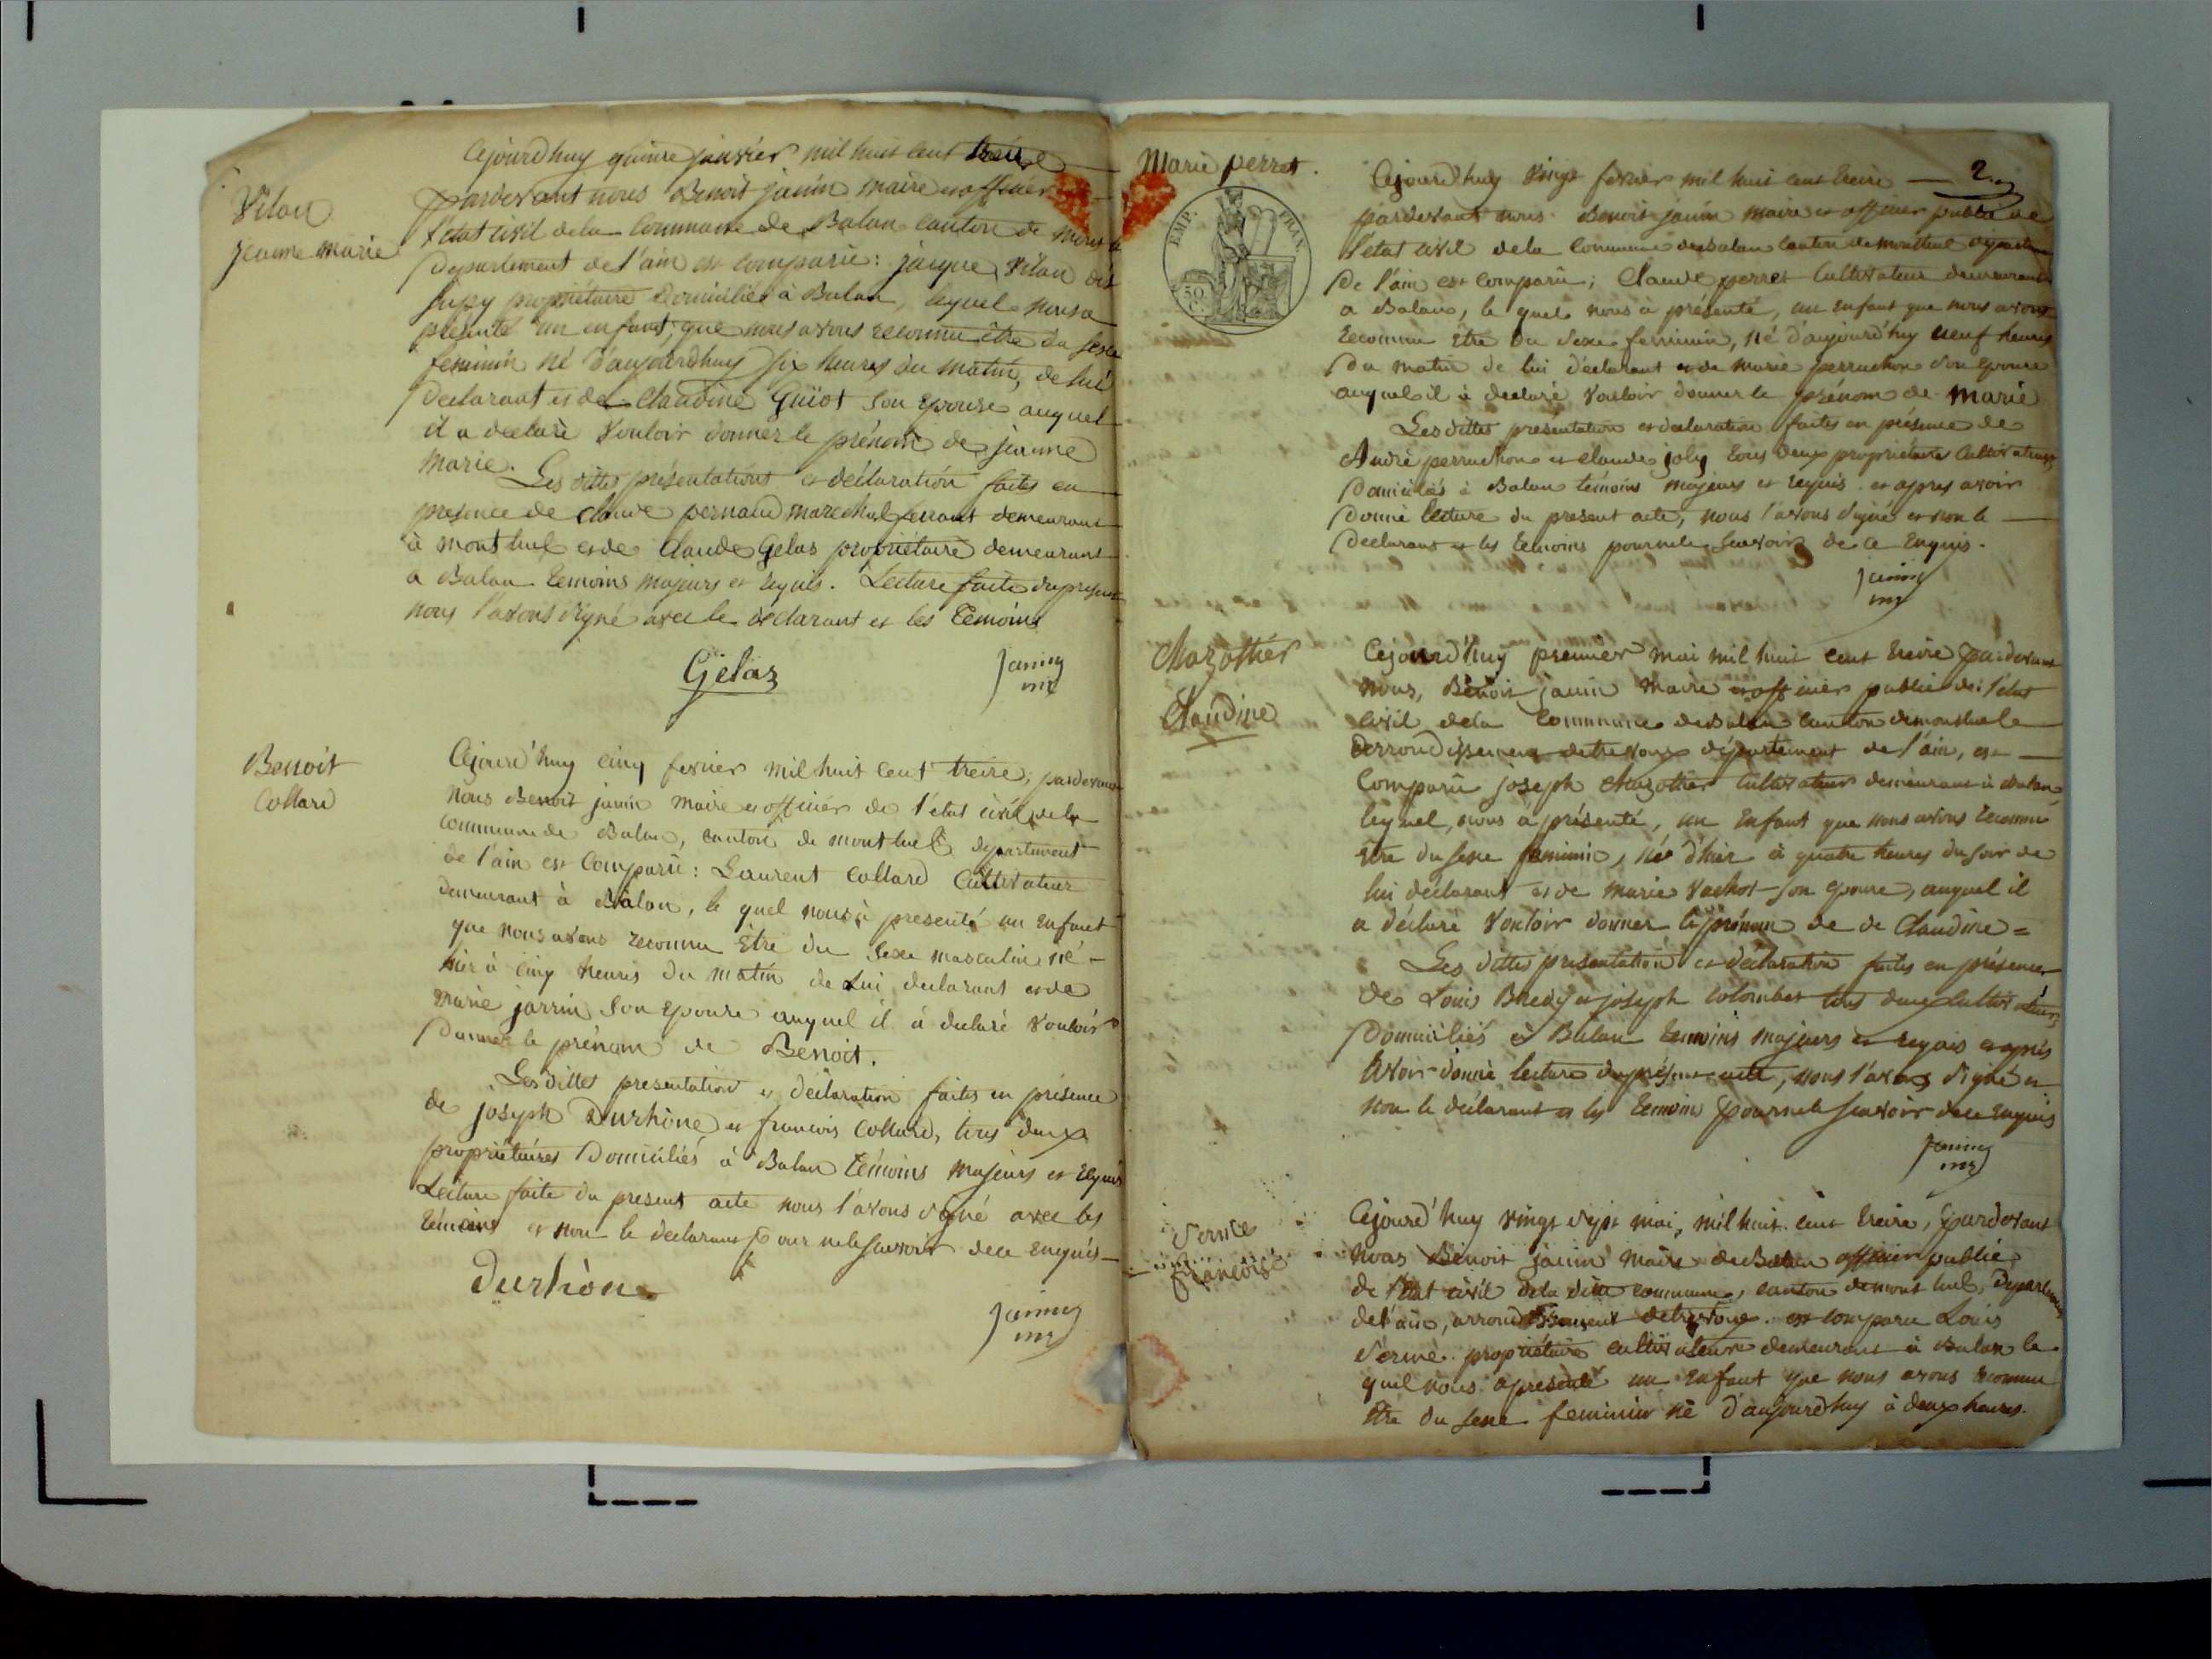 Cejourd'huy quinze janvier mil huit cent treize
pardevant nous Benoit janin maire et officier
Vilan
jeanne marie
l'etat civil de la commune de Balan canton de
Departement de l'ain est comparu: jacque Vilan dit
propriétaire Domicilié à Balan, lequel nous a
présenté un enfant, que nous avons reconnu être du sexe
feminin né d'aujourdhuy six heures du matin, de lui
Declarant et de Claudine Guiot son epouse auquel
il a declaré vouloir donner le prénom de jeanne
marie. Les dittes présentations et déclaration faites en
presence de claude pernaud marechal ferrant demeurant
à montluel et de Claude Gelas propriétaire demeurant
a Balan temoins majeurs et requis. Lecture faite du present
nous l'avons signé avec le déclarant et les temoins
Gelas
janin
mre
Benoit
Collard
Cejourd'huy cinq fevrier mil huit cent treize; pardevant
nous Benoit janin maire et officier de l'etat civil de la
commune de Balan, canton de montluel departement
de l'ain est comparu: Laurent Collard Cultivateur
demeurant à Balan, le quel nous à presenté un enfant
que nous avons reconnu être du sexe masculin né
hier à cinq heures du matin de lui declarant et de
marie jarrin son epouse auquel il à declaré vouloir
Donner le prénom de Benoit.
Les dittes presentation et déclaration faites en présence
de joseph Durhône et francois Collard, tous deux
propriétaires Domiciliés à Balan témoins majeurs et requis
Lecture faite du present acte nous l'avons signé avec les
témoins et non le declarant pour ne le savoir de ce enquis
durhòne
janin
mre
Marie perret.
2.
EMP. FRAN.
50
C.
Cejourd'huy vingt fevrier mil huit cent treize
pardevant nous Benoit janin maire et officier public de
l'etat civil de la commune de Balan canton de montluel departement
De l'ain est comparu; Claude perret Cultivateur demeurant
a Balan, le quel nous à présenté, un enfant que nous avons
reconnu être du sexe feminin, né d'aujourd'huy neuf heures
Du matin de lui déclarant et de marie perruchon son epouse
auquel il à declaré vouloir donner le prénom de Marie
Les dittes presentation et declaration faites en présence de
André perruchon et claude joly tous deux propriétaires Cultivateurs
Domiciliés à Balan témoins majeurs et requis et apres avoir
Donné lecture du present acte, nous l'avons signé et non le
Declarant et les temoins pour ne le scavoir de ce enquis.
janin
mre
Chazottier
Claudine
Cejourd'huy premier mai mil huit cent treize pardevant
nous, Benoit janin maire et officier public de l'etat
civil de la commune de Balan canton de montluel
derrondissement de trevoux département de l'ain, est
Comparu joseph chazottier Cultivateur demeurant à Balan
lequel, nous à présenté, un enfant que nous avons reconnu
être du sexe feminin, née d'hier à quatre heures du soir de
lui declarant et de marie Vachot son epouse, auquel il
a déclaré vouloir donner le prénom de de Claudine =
Les dittes présentation et déclaration faites en présence
de Louis Bredy et joseph Colombet tous deux Cultivateurs
Domiciliés à Balan temoins majeurs et requis et après
Avoir donné lecture du présent acte, nous l'avons signé et
non le déclarant et les temoins pour ne le scavoir de ce enquis
janin
mre
françoise
Cejourd'huy vingt sept mai, mil huit cent treize, pardevant
nous Benoit janin maire de Balan officier public
de l'état civil de la dite commune, canton de mont luel, Departement
de l'ain, arrondissement de trevoux. est comparu Louis
propriétaire cultivateur demeurant à Balan le
quel nous a presenté un enfant que nous avons reconnu
être du sexe feminin né d'aujourdhuy à deux heures.